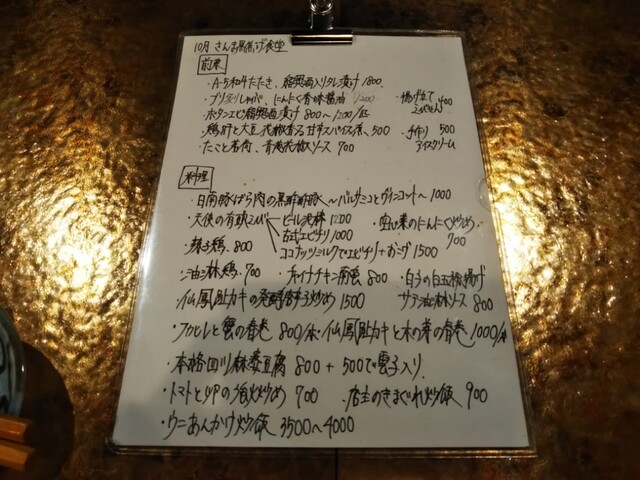 10月 さんお黒揚げ食堂
前菜
・A-5和牛たたき、紹興酒入りタレ漬け 1800
・ブリ しゃぶ、にんにく香味醤油 1200
・揚げ立てえびせん 400
・ボタンエビ紹興酒漬け 800〜1200/匹
・鶏肝と大豆 花椒香る甘辛スパイス煮、500
・手作りアイスクリーム 500
・たこと 青唐花椒ソース 700
料理
・日南豚ばら肉の黒酢酢豚 〜バルサミコとヴィンコット〜 1000
・天使の有頭えび ビール泡揚 1200
古式エビチリ 1000
ココナッツミルクでエビチリ+おこげ 1500
・空心菜のにんにく炒め 700
・辣子鶏 800
・油淋鶏 700
・チャイナチキン南蛮 800
・白子の白玉 揚げ サテ油淋ソース 800
・仏鳳 貝占カキの発酵唐辛子炒め 1500
・フカヒレと蟹の春巻 800/本
・仏鳳 貝占カキと木の芽の春巻 1000/本
・本格四川麻婆豆腐 800 + 500で雲子入り
・トマトと卵の強火炒め 700
・店主のきまぐれ炒飯 900
・ウニあんかけ炒飯 3500〜4000